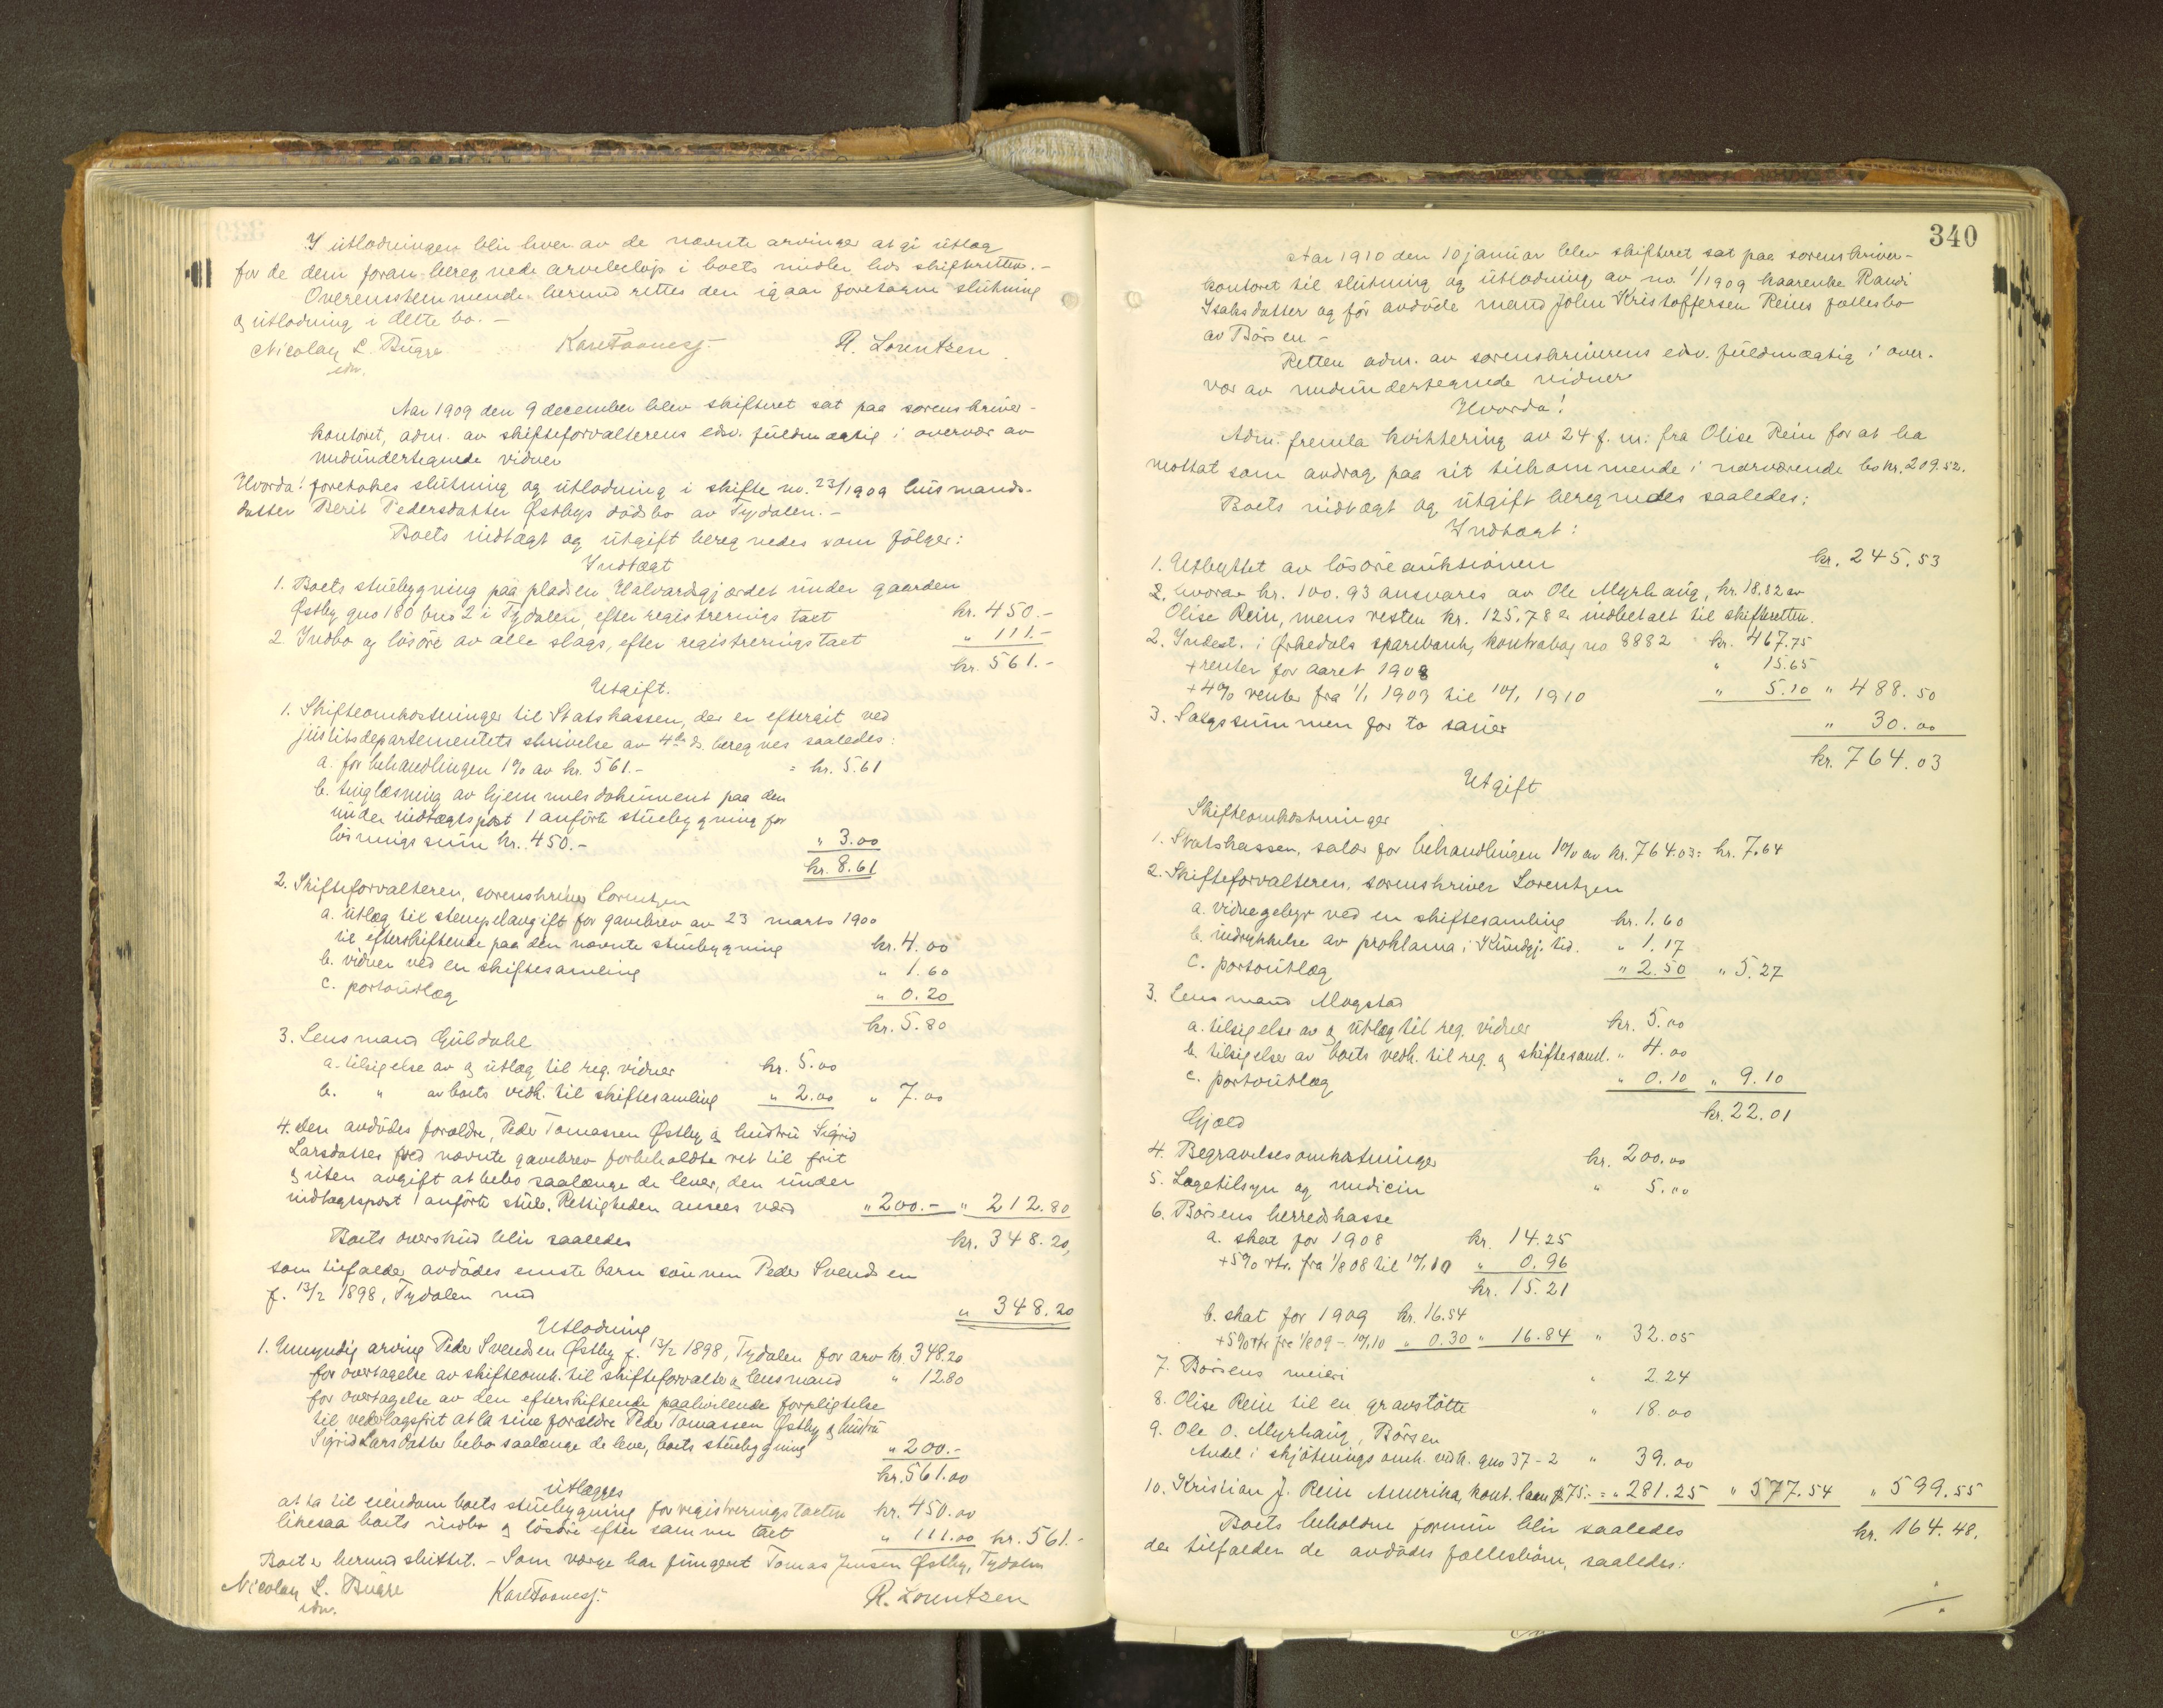 I utlodningen blir hver av de nævnte arvinger at gi utlæg
for de dem foran beregnede arvebeløp i boets midler hos skifteretten. -
Overensstemmende hermed rettes den igaar foretagne slutning
og utlodning i dette bo. -
Nicolay L. Bugge
edv.
Kare Foosnæs
R. Lorentzen.
Aar 1909 den 9 december blev skifteret sat paa sorenskriver-
kontoret, adm. av skifteforvalterens edsv. fuldmægtig i overvær av
medundertegnede vidner
Hvorda: foretokes slutning og utlodning i skifte no. 23/1909 husmands-
datter Berit Pedersdatter Østbys dødsbo av Tydalen. -
Boets indtægt og utgift beregnedes som følger:
Indtægt
1. Boets stuebygning paa pladsen Halvardsgjærdet under gaarden
Østby gno 180 bno 2 i Tydalen, efter registreringstaxt kr. 450.-
2. Indbo og løsøre av alle slags, efter registreringstaxt " 111.-
kr. 561.-
Utgift.
1. Skifteomkostninger til Statskassen, der er eftergit ved
justitsdepartementets skrivelse av 4de ds. beregnes saaledes:
a. for behandlingen 1% av kr. 561.- = kr. 5.61
b. tinglæsning av hjemmelsdokument paa den
under indtægtspost 1 anførte stuebygning for
løsningssum kr. 450.- " 3.00
kr. 8.61
2. Skifteforvalteren, sorenskriver Lorentzen
a. utlæg til stempelavgift for gavebrev av 23 marts 1900
til efterskiftende paa den nævnte stuebygning kr. 4.00
b. vidner ved en skiftesamling " 1.60
c. portoutlæg " 0.20
kr. 5.80
3. Lensmand Guldahl
a. tilsigelse av og utlæg til reg. vidner kr. 5.00
b. " av boets vedk. til skiftesamling " 2.00 " 7.00
4. den avdødes forældre, Peder Tomassen Østby og hustru Sigrid
Larsdatter ved nævnte gavebrev forbeholdte ret til frit
og uten avgift at bebo saalænge de lever, den under
indtægtspost 1 anførte stue. Rettigheden ansees værd " 200.- " 212.80
Boets overskud blir saaledes kr. 348.20,
som tilfalder avdødes eneste barn sønnen Peder Svendsen
f. 13/2 1898, Tydalen med " 348.20
Utlodning
1. Umyndig arving Peder Svendsen Østby f. 13/2 1898, Tydalen for arv kr. 348.20
for overtagelse av skifteomk. til skifteforvalter og lensmand " 12.80
for overtagelse av den efterskiftende paahvilende forpligtelse
til vederlagsfrit at la sine forældre Peder Tomassen Østby og hustru
Sigrid Larsdatter bebo saalænge de lever, boets stuebygning " 200.-
kr. 561.00
utlægges
at ta til eiendom boets stuebygning for registreringstaxten kr. 450.00
likesaa boets indbo og løsøre efter samme taxt " 111.00 kr. 561.-
Boet er hermed sluttet. - Som værge har fungeret Tomas Jensen Østby, Tydalen
Nicolay L. Bugge
edv.
Kare Foosnæs
R. Lorentzen
340
Aar 1910 den 10 januar blev skifteret sat paa sorenskriver-
kontoret til slutning og utlodning av no. 1/1909 kaarenke Randi
Isaksdatter og før avdøde mand John Kristoffersen Reins fællesbo
av Børsen -
Retten adm. av sorenskriverens edsv. fuldmægtig i over-
vær av medundertegnede vidner
Hvorda!
Adm. fremla kvittering av 24 f. m. fra Olise Rein for at ha
mottat som avdrag paa sit tilkommende i nærværende bo kr. 209.52.
Boets indtægt og utgift beregnedes saaledes:
Indtægt:
1. Utbyttet av løsøreauktionen kr. 245.53
2. hvorav kr. 100.93 ansvares av Ole Myrhaug, kr. 18.82 av
Olise Rein, mens resten kr. 125.78 er indbetalt til skifteretten.
2. Indest. i Ørkedals sparebank, kontrabog no 8882 kr. 467.75
+ renter for aaret 1908 " 15.65
+ 4% renter fra 1/1 1909 til 10/1 1910 " 5.10 " 488.50
3. Salgssummen for to sauer " 30.00
kr. 764.03
Utgift
Skifteomkostninger
1. Statskassen, salær for behandlingen 1% av kr. 764.03 = kr. 7.64
2. Skifteforvalteren, sorenskriver Lorentzen
a. vidnegebyr ved en skiftesamling kr. 1.60
b. indrykkelse av proklama i Kundgj. tid. " 1.17
c. portoutlæg " 2.50 " 5.27
3. Lensmand Mogstad
a. tilsigelse av og utlæg til reg. vidner kr. 5.00
b. tilsigelse av boets vedk. til reg. og skiftesaml. " 4.00
c. portoutlæg " 0.10 " 9.10
kr. 22.01
Gjæld
4. Begravelsesomkostninger kr. 200.00
5. Lægetilsyn og medicin " 5.00
6. Børsens herredskasse
a. skat for 1908 kr. 14.25
+ 5% rtr. fra 1/8 08 til 10/1 10 " 0.96
kr. 15.21
b. skat for 1909 kr. 16.54
+ 5% rtr fra 1/8 09 - 10/1 10 " 0.30 " 16.84 " 32.05
7. Børsens meieri " 2.24
8. Olise Rein til en gravstøtte " 18.00
9. Ole O. Myrhaug, Børsen
Andel i skjøtningsomk. vedk. gno 37-2 " 39.00
10. Kristian J. Rein Amerika, kont. laan $ 75.- = " 281.25 " 577.54 " 599.55
Boets beholdne formue blir saaledes kr. 164.48.
der tilfalder de avdødes fællesbørn, saaledes: